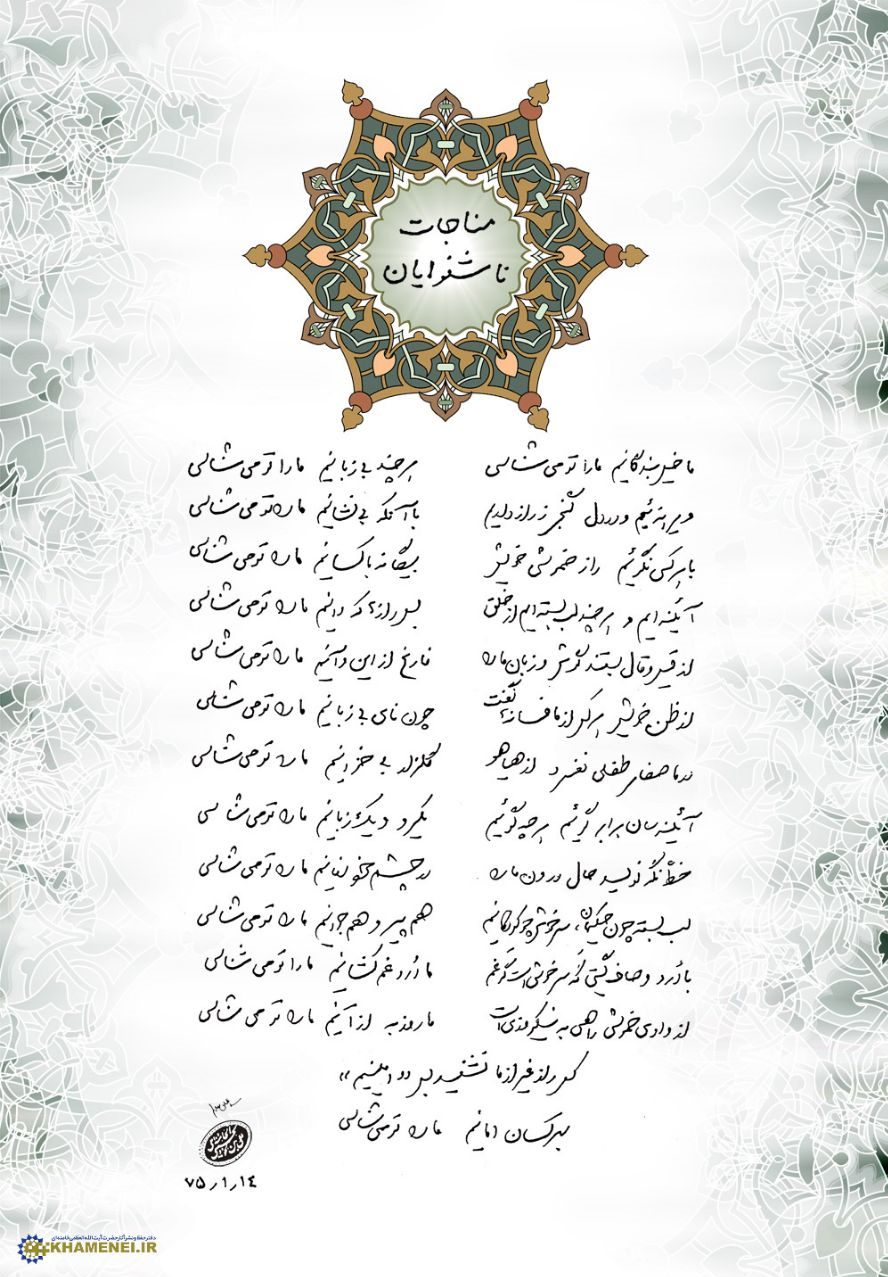 مناجات
ناشنوایان
ما خیل بندگانیم ما را تو می‌شناسی هر چند بی‌زبانیم ما را تو می‌شناسی
ویرانه‌ئیم و در دل گنجی ز راز داریم با آنکه بی‌نشانیم ما را تو می‌شناسی
با هر کسی نگوئیم راز خموشی خویش بیگانه با کسانیم ما را تو می‌شناسی
آئینه‌ایم و هر چند لب بسته‌ایم از خلق بس رازها که دانیم ما را تو می‌شناسی
از قیل و قال بستند گوش و زبان ما را فارغ از این و آنیم ما را تو می‌شناسی
از ظن خویش هر کس از ما فسانه‌ها گفت چون نای بی‌زبانیم ما را تو می‌شناسی
در ما صفای طفلی نفسرد از هیاهو گلزار بی‌خزانیم ما را تو می‌شناسی
آئینه‌سان برابر گوئیم هر چه گوئیم یکرو و یک زبانیم ما را تو می‌شناسی
خطّ نگه نویسد حال درون ما را در چشم خود نهانیم ما را تو می‌شناسی
لب بسته چون حکیمان، سرخوش چو کودکانیم هم پیر و هم جوانیم ما را تو می‌شناسی
با دُرد و صاف گیتی گه سرخوش است گه غم ما دُرد غم کشانیم ما را تو می‌شناسی
از وادی خموشی راهی به نیکروزی است ما روز به از آنیم ما را تو می‌شناسی
کس راز غیر از ما نشنید بس «امینیم»
بهر کسان امانیم ما را تو می‌شناسی
۷۵٫۱٫۱۴
دفتر حفظ و نشر آثار حضرت آیت‌الله‌العظمی خامنه‌ای
KHAMENEI.IR